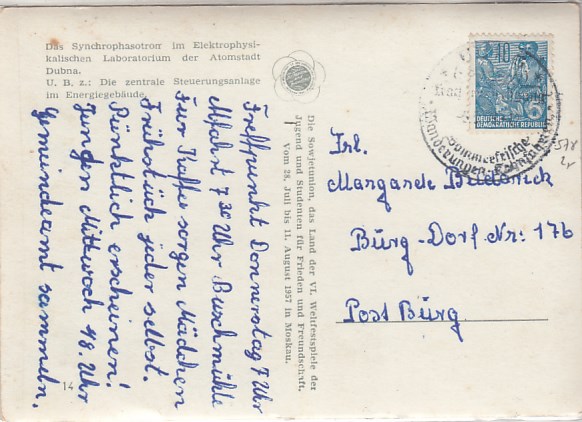 Das Synchrophasotron im Elektrophysi-
kalischen Laboratorium der Atomstadt
Dubna.
U. B. z.: Die zentrale Steuerungsanlage
im Energiegebäude.
Treffpunkt Donnerstag 7 Uhr
Abfahrt 7 30 Uhr Buschmühle
Für Kaffe sorgen Mädchen
Frühstück jeder selbst.
Pünktlich erscheinen!
Jungen Mittwoch 18. Uhr
Gemeindeamt sammeln.
14
Die Sowjetunion, das Land der VI. Weltfestspiele der
Jugend und Studenten für Frieden und Freundschaft,
Vom 28. Juli bis 11. August 1957 in Moskau.
10
DEUTSCHE
DEMOKRATISCHE REPUBLIK
Sommerfrische
Wanderungen
578
Frl.
Margarede
Burg-Dorf Nr: 176
Post Burg.